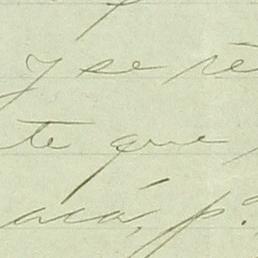 y se re
te que
acá, p.